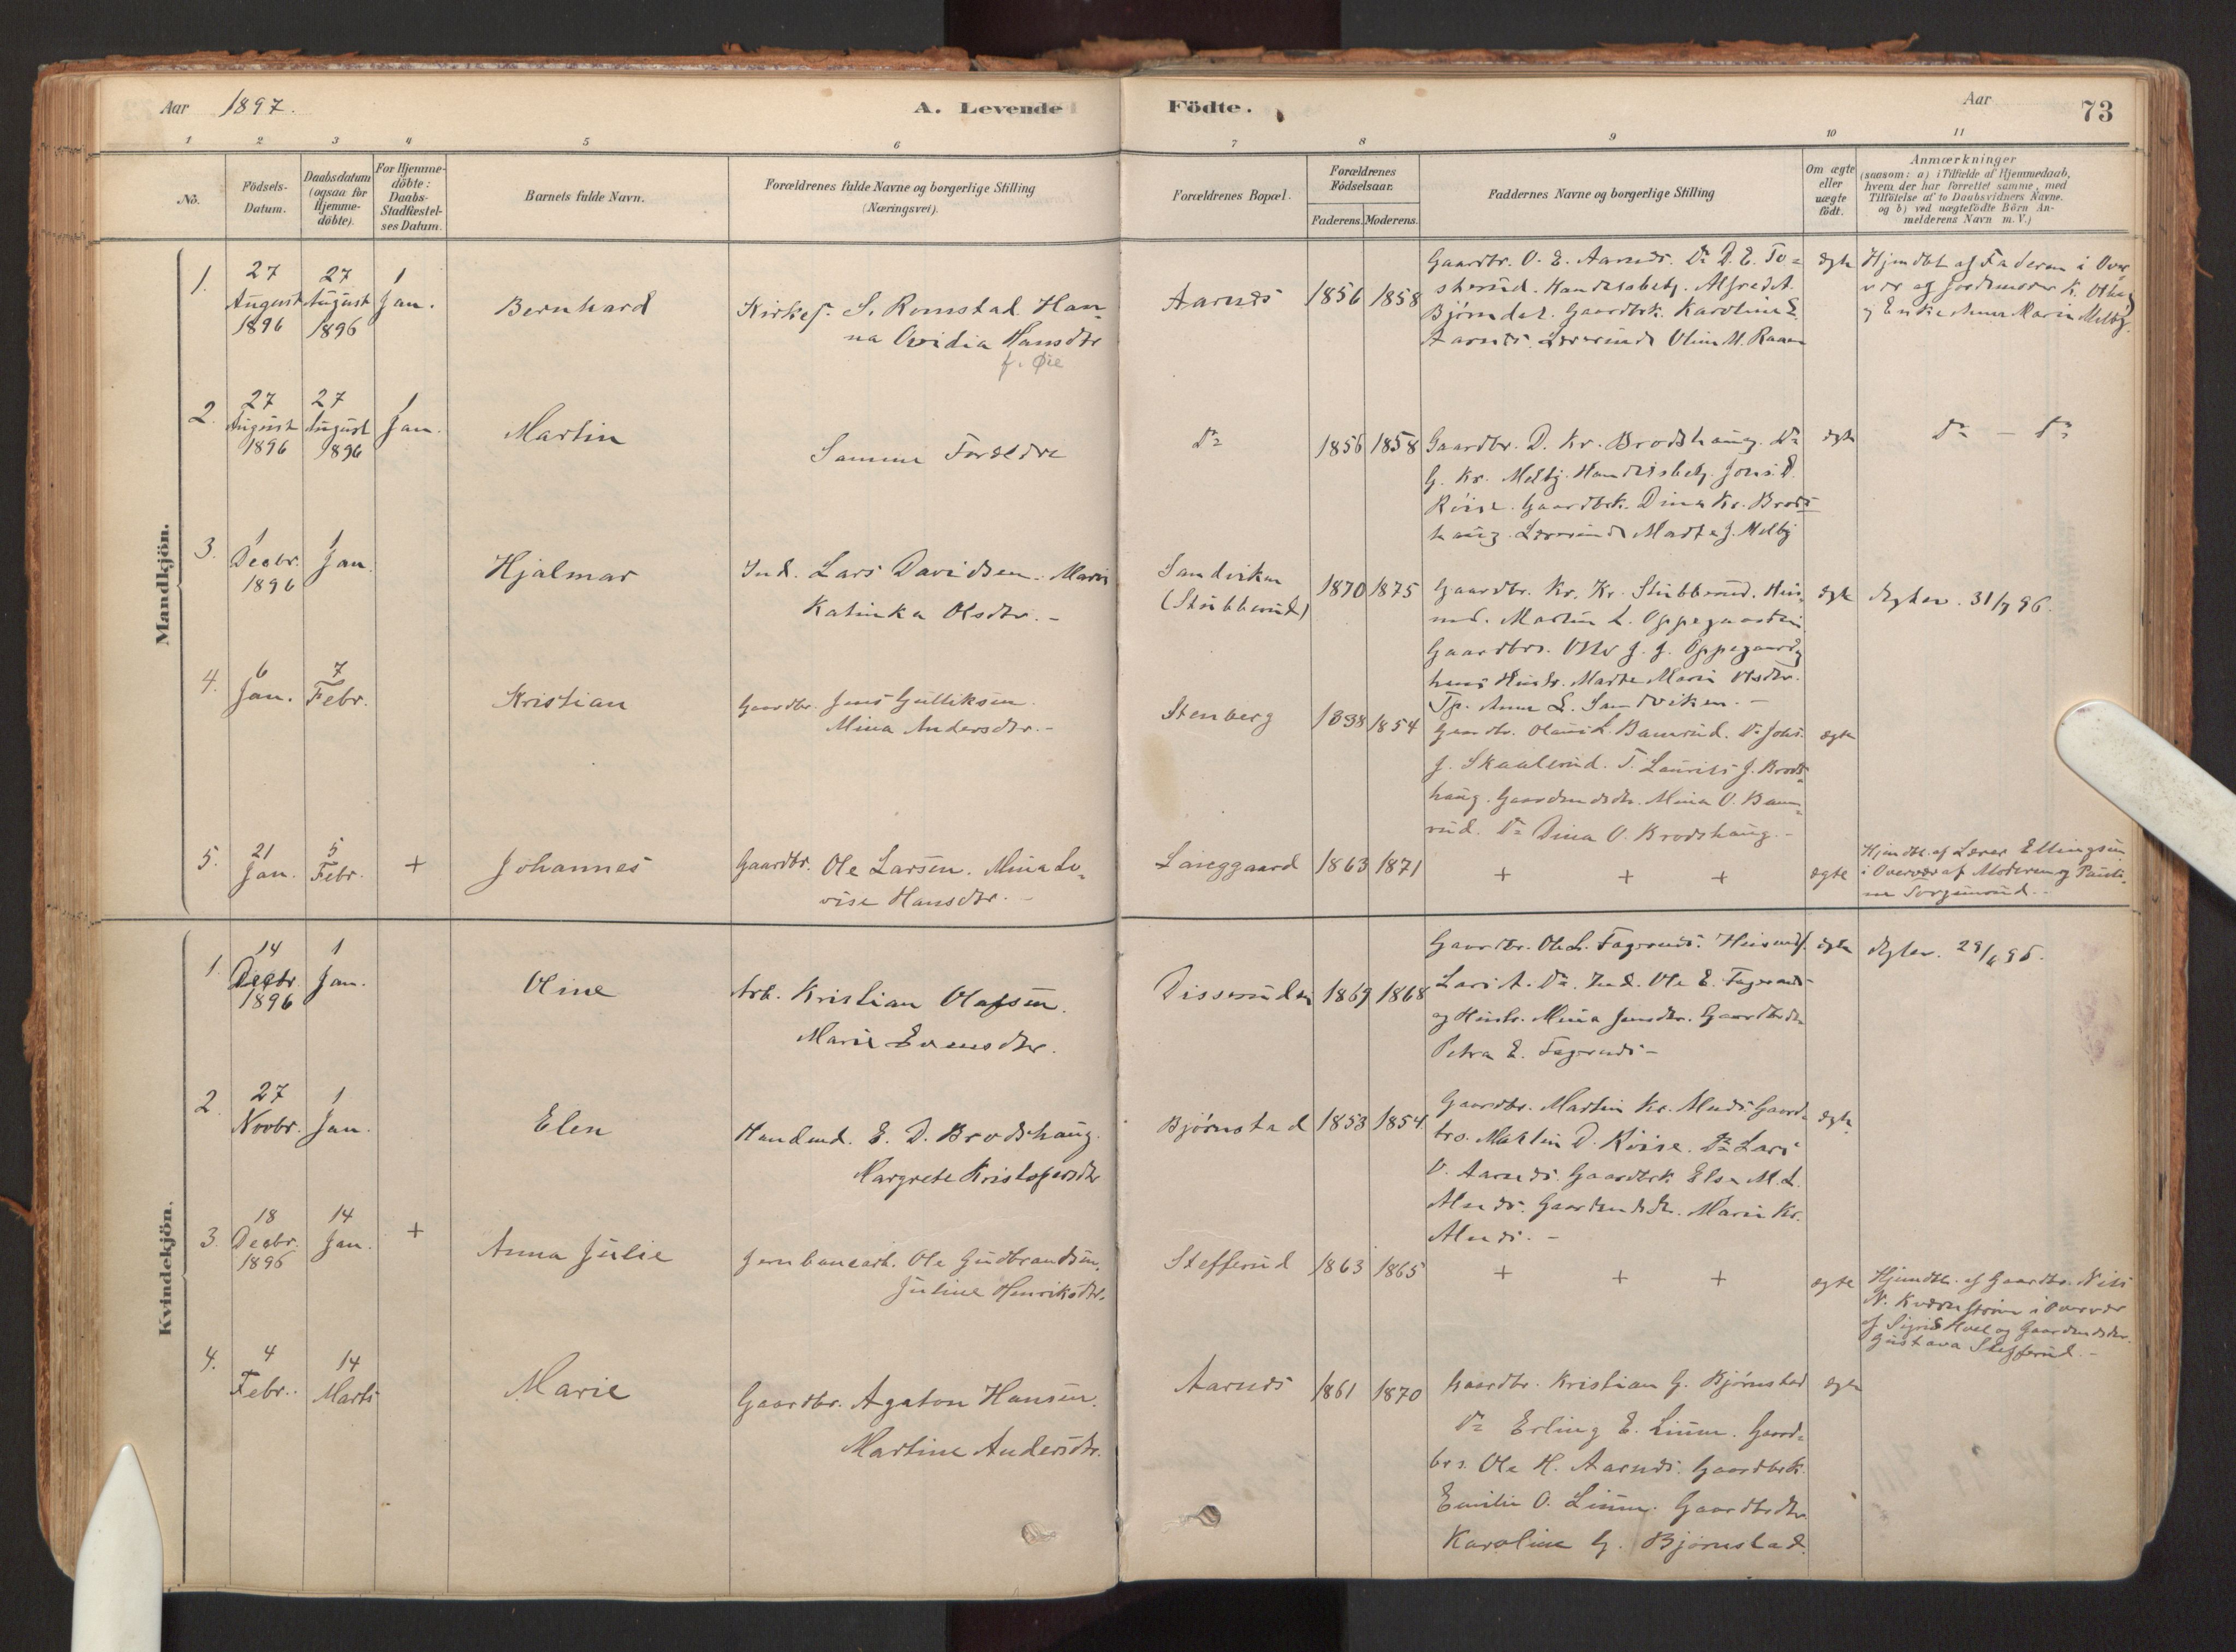 Aar 1897.
A. Levende Födte.
Aar
73
1 2 3 4 5 6 7 8 9 10 11
No.
Födsels-
Datum.
Daabsdatum
(ogsaa for
Hjemme-
döbte).
For Hjemme-
döbte:
Daabs-
Stadfæstel-
ses Datum.
Barnets fulde Navn.
Forældrenes fulde Navne og borgerlige Stilling
(Næringsvei).
Forældrenes Bopæl.
Forældrenes
Födselsaar.
Faderens. Moderens.
Faddernes Navne og borgerlige Stilling
Om ægte
eller
uægte
födt.
Anmærkninger
(saasom: a) i Tilfælde af Hjemmedaab,
hvem der har forrettet samme, med
Tilföielse af to Daabsvidners Navne.
og b) ved uægtefödte Börn An-
melderens Navn m. V.)
Mandkjön.
1.
27
August
1896
27
August
1896
1
Jan.
Bernhard
Kirkes. S. Romstad Han-
na Ovidia Hansdtr
f. Øie
Aarnæs
1856 1858
Gaardbr. O. E. Aarnæs. Do D. E. To-
sterud. Handelsbetj. Alfred A.
Bjørndal. Gaardbrk. Karoline E.
Aarnæs. Lærerinde Oline M. Raaen
ægte
Hjemdbt af Faderen i Over
vær af Jordemoder K. Olberg
og Enke Anna Marie Melby.
2.
27
August
1896
27
August
1896
1
Jan.
Martin
Samme Forældre
Do
1856 1858
Gaardbr. D. Kr. Brodshaug. Do
G. Kr. Melby. Handelsbetj. Johs. D.
Røise. Gaardbrk. Dina Kr. Brods-
haug. Lærerinde Marthe J. Melby
ægte
Do — Do
3.
1
Decbr.
1896
1
Jan.
Hjalmar
Ind. Lars Davidsen. Marie
Katinka Olsdtr. -
Sandviken
(Stubberud)
1870 1875
Gaardbr. Kr. Kr. Stubberud. Hus-
md. Martin L. Oppegaardein
Gaardbrs. Olav J. J. Oppegaard og
hans Hustr. Marte Marie Olsdtr.
Tp. Anna L. Sandviken. -
ægte
Ægtev. 31/7 96.
4.
6
Jan.
7
Febr.
Kristian
Gaardbr. Jens Gulliksen.
Mina Andersdtr. -
Stenberg
1838 1854
Gaardbr. Olaus L. Bamrud. Do Johs.
J. Skaalerud. T. Laurits J. Brods-
haug. Gaardmdsdtr. Mina O. Bam-
rud. Do Dina O. Brodshaug. -
ægte
5.
21
Jan.
5
Febr.
+
Johannes
Gaardbr. Ole Larsen. Mina Lo-
vise Hansdtr. -
Langgaard
1863 1871
+ + +
ægte
Hjemdbt. af Lærer Ellingsen
i Overvær af Moderen og Pauli-
ne Torgunrud. -
Kvindekjön.
1.
14
Decbr.
1896
1
Jan.
Oline
Arb. Kristian Olafsen.
Marie Evensdtr.
Disserudin
1869 1868
Gaardbr. Ole L. Fagernæs. Husmdsf.
Lars A. Do. Ind. Ole E. Fagernæs
og Hustr. Mina Jensdtr. Gaardbrdtr
Petra E. Fagernæs -
ægte
Ægtev. 29/6 96.
2.
27
Novbr.
1
Jan.
Elen
Handmd. E. D. Brodshaug.
Margrete Kristofersdtr
Bjørnstad
1853 1854
Gaardbr. Martin Kr. Alnæs. Gaard-
brs. Martin D. Røise. Do Lars
O. Aarnæs. Gaardbrk. Else M. L.
Alnæs. Gaardmdsdtr. Marie Kr.
Alnæs. -
ægte
3.
18
Decbr.
1896
14
Jan.
+
Anna Julie
Jernbanearb. Ole Gudbrandsen.
Juline Henriksdtr.
Stefferud
1863 1865
+ + +
ægte
Hjemdbt. af Gaardbr. Nils
N. Kværnstrøm i Overvær
af Sigrid Hval og Gaardmdsdtr.
Gustava Stefferud. -
4.
4
Febr.
14
Marts
Marie
Gaardbr. Agaton Hansen.
Martine Andersdtr.
Aarnæs
1861 1870
Gaardbr. Kristian G. Bjørnstad
Do Erling E. Linne. Gaard-
brs. Ole H. Aarnæs. Gaardbrk.
Emilie O. Linne. Gaardbrdtr.
Karoline G. Bjørnstad.
ægte